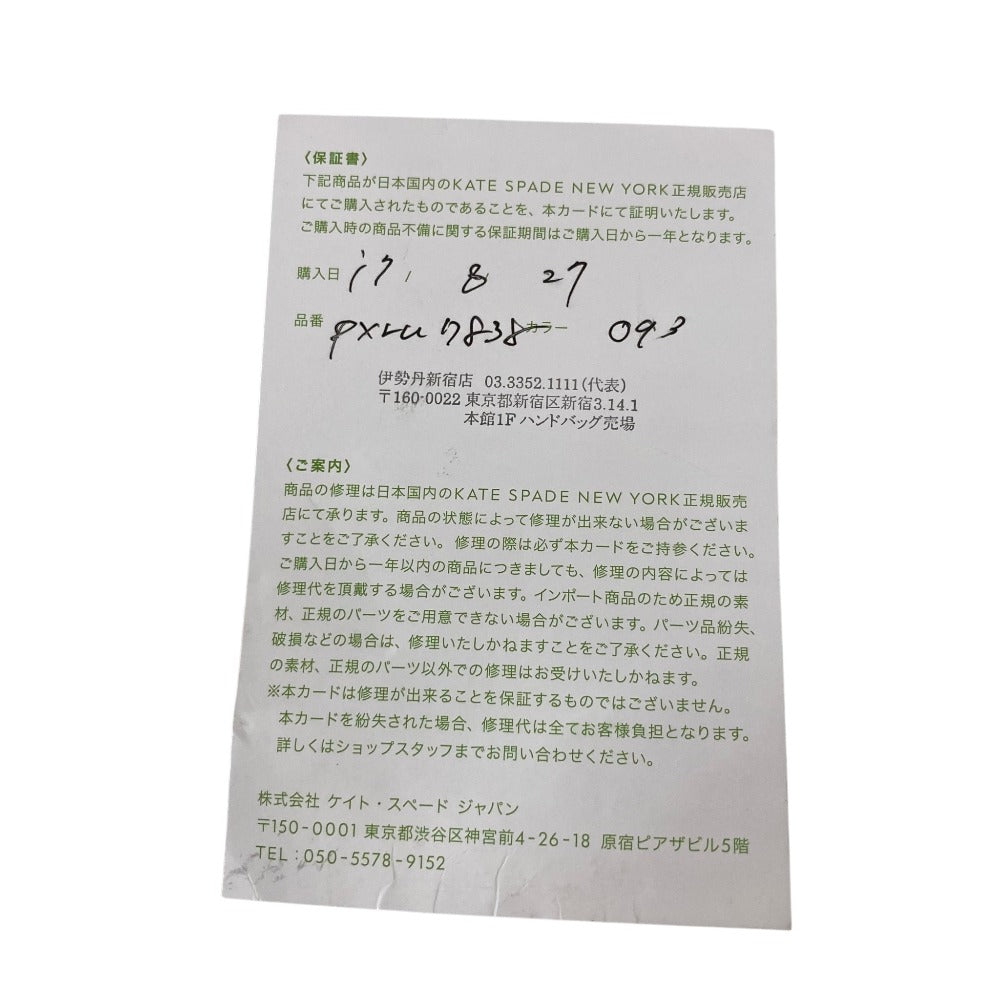 〈保証書〉
下記商品が日本国内のKATE SPADE NEW YORK正規販売店
にてご購入されたものであることを、本カードにて証明いたします。
ご購入時の商品不備に関する保証期間はご購入日から一年となります。
購入日 17 / 8 27
品番 pxru7838 カラー 093
伊勢丹新宿店 03.3352.1111(代表)
〒160-0022 東京都新宿区新宿3.14.1
本館1F ハンドバッグ売場
〈ご案内〉
商品の修理は日本国内のKATE SPADE NEW YORK正規販売
店にて承ります。商品の状態によって修理が出来ない場合がございま
すことをご了承ください。修理の際は必ず本カードをご持参ください。
ご購入日から一年以内の商品につきましても、修理の内容によっては
修理代を頂戴する場合がございます。インポート商品のため正規の素
材、正規のパーツをご用意できない場合がございます。パーツ品紛失、
破損などの場合は、修理いたしかねますことをご了承ください。正規
の素材、正規のパーツ以外での修理はお受けいたしかねます。
※本カードは修理が出来ることを保証するものではございません。
本カードを紛失された場合、修理代は全てお客様負担となります。
詳しくはショップスタッフまでお問い合わせください。
株式会社 ケイト・スペード ジャパン
〒150-0001 東京都渋谷区神宮前4-26-18 原宿ピアザビル5階
TEL：050-5578-9152